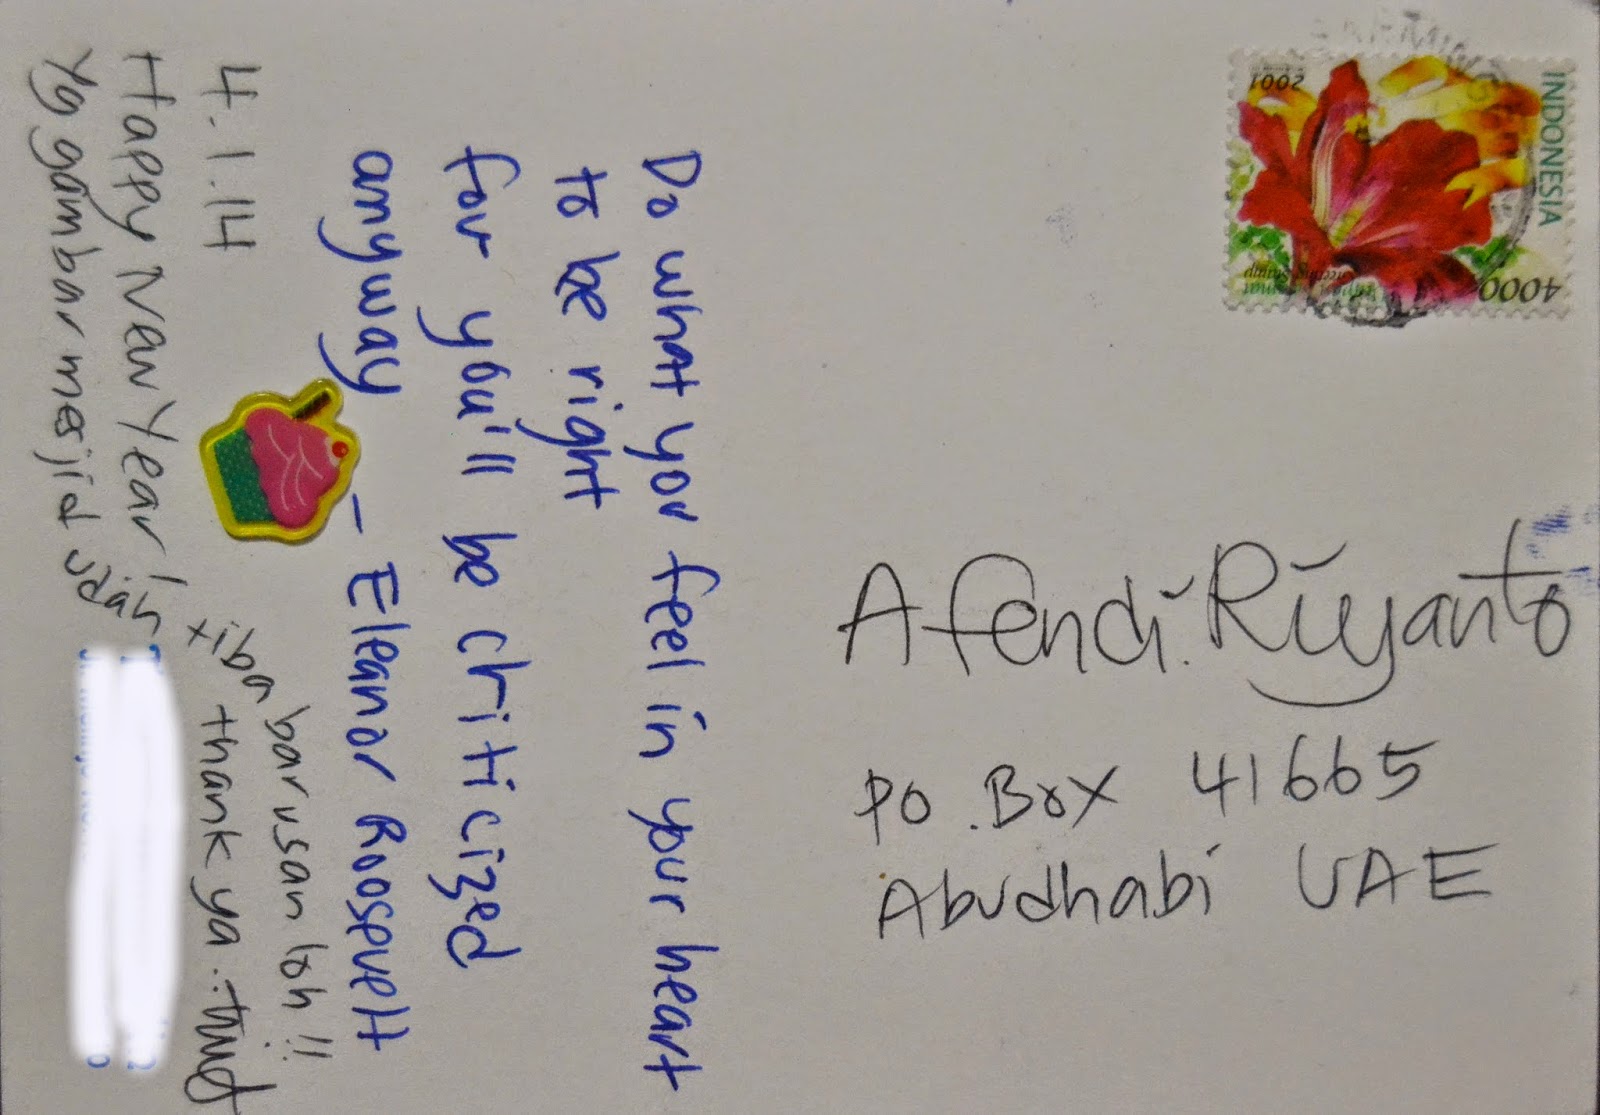 Do what you feel in your heart
to be right
for you'll be criticized
anyway
– Eleanor Roosevelt
4.1.14
Happy New Year!
Yg gambar mesjid udah
tiba barusan loh!!
thank ya.
Afendi Riyanto
PO.Box 41665
Abudhabi UAE
INDONESIA
2001
4000